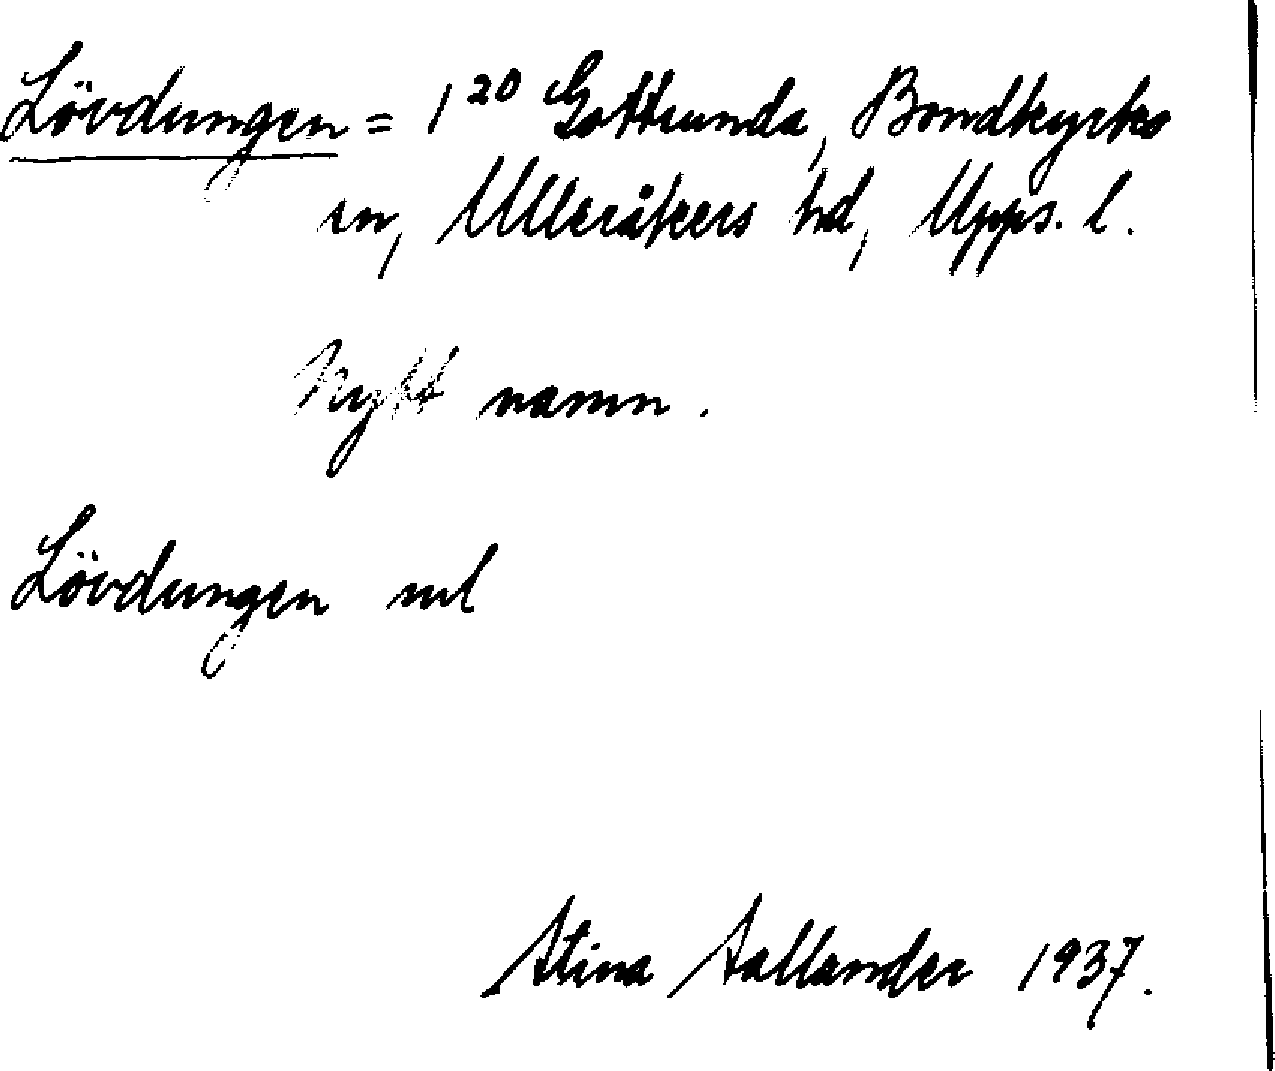 Lövdungen = 1²⁰ Gottsunda, Bondkyrko
sn, Ulleråkers hd, Upps. l.
Nytt namn.
Lövdungen ml
Stina Sallander 1937.